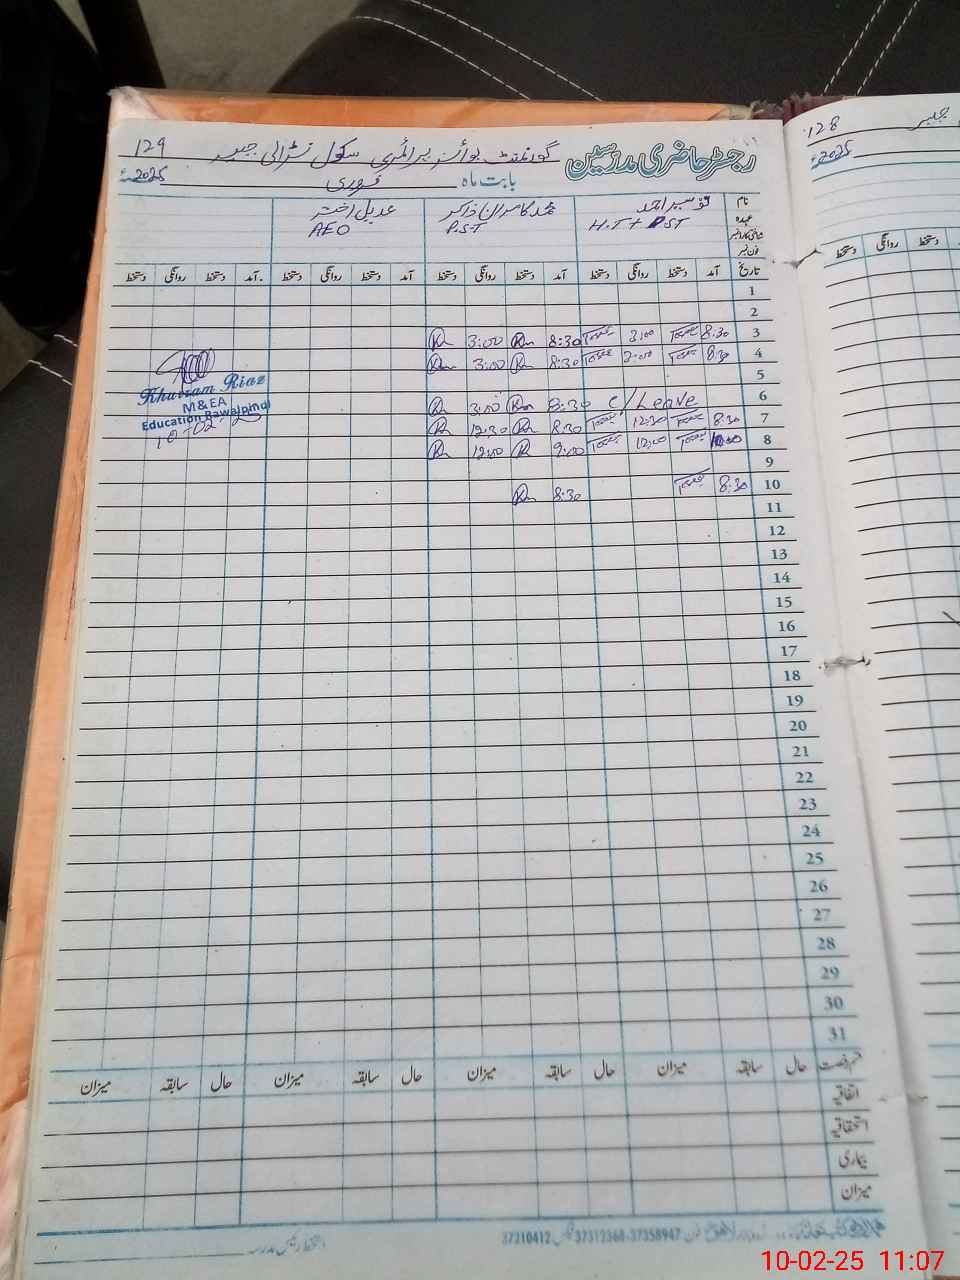 129 گورنمنٹ بوائز پرائمری سکول نڑالی جبیر رجسٹر حاضری مدرسین
بابت ماہ فروری 2025ء
نام توسیر احمد محمد کامران ذاکر عدیل اختر
عہدہ H.T + PST P.S.T AEO
فون نمبر
تاریخ آمد دستخط روانگی دستخط آمد دستخط روانگی دستخط آمد دستخط روانگی دستخط آمد دستخط روانگی دستخط
1
2
3 8:30 3:00 8:30 3:00
4 8:30 3:00 8:30 3:00
5
6 C/Leave 8:30 3:00
7 8:30 12:30 8:30 12:30
8 12:00 9:00 12:00
9
10 8:30 8:30
11
12
13
14
15
16
17
18
19
20
21
22
23
24
25
26
27
28
29
30
31
Khurram Riaz
M&EA
Education Rawalpindi
10-02-25
قسم رخصت حال سابقہ میزان حال سابقہ میزان حال سابقہ میزان حال سابقہ میزان
اتفاقیہ
استحقاقیہ
بیماری
میزان
دستخط رئیس مدرسہ
37310412 37312368-37358947
128
2025ء
دستخط روانگی دستخط
10-02-25 11:07